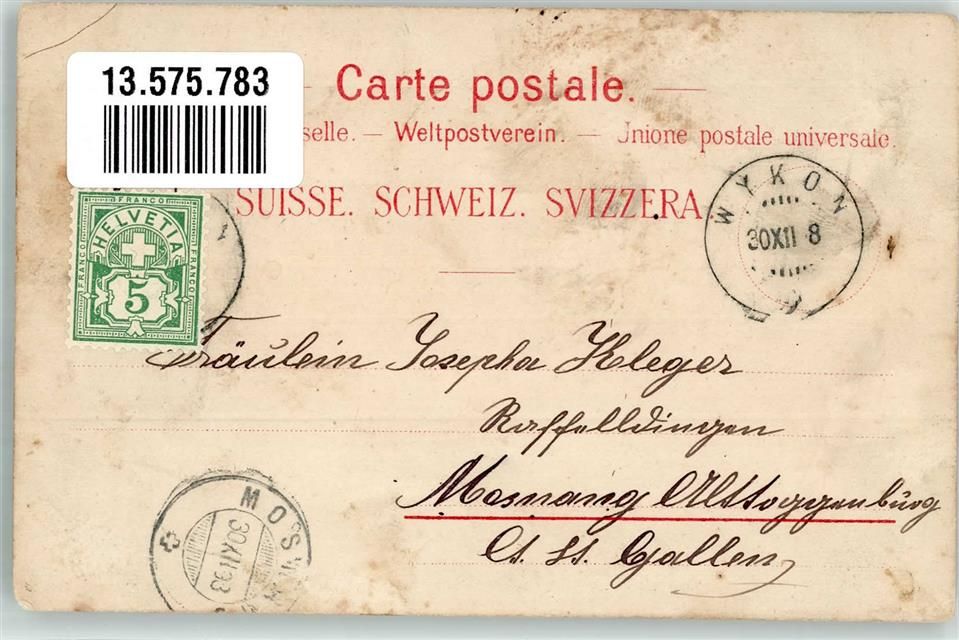 13.575.783
Carte postale.
selle. — Weltpostverein. — Unione postale universale.
SUISSE. SCHWEIZ. SVIZZERA
WYKON
30XII 8
FRANCO
HELVETIA
FRANCO
FRANCO
5
Fräulein Josepha Kleger
Raffelldingen
Mosnang Alttoggenburg
Ct. St. Gallen
MOSN
30XII 93